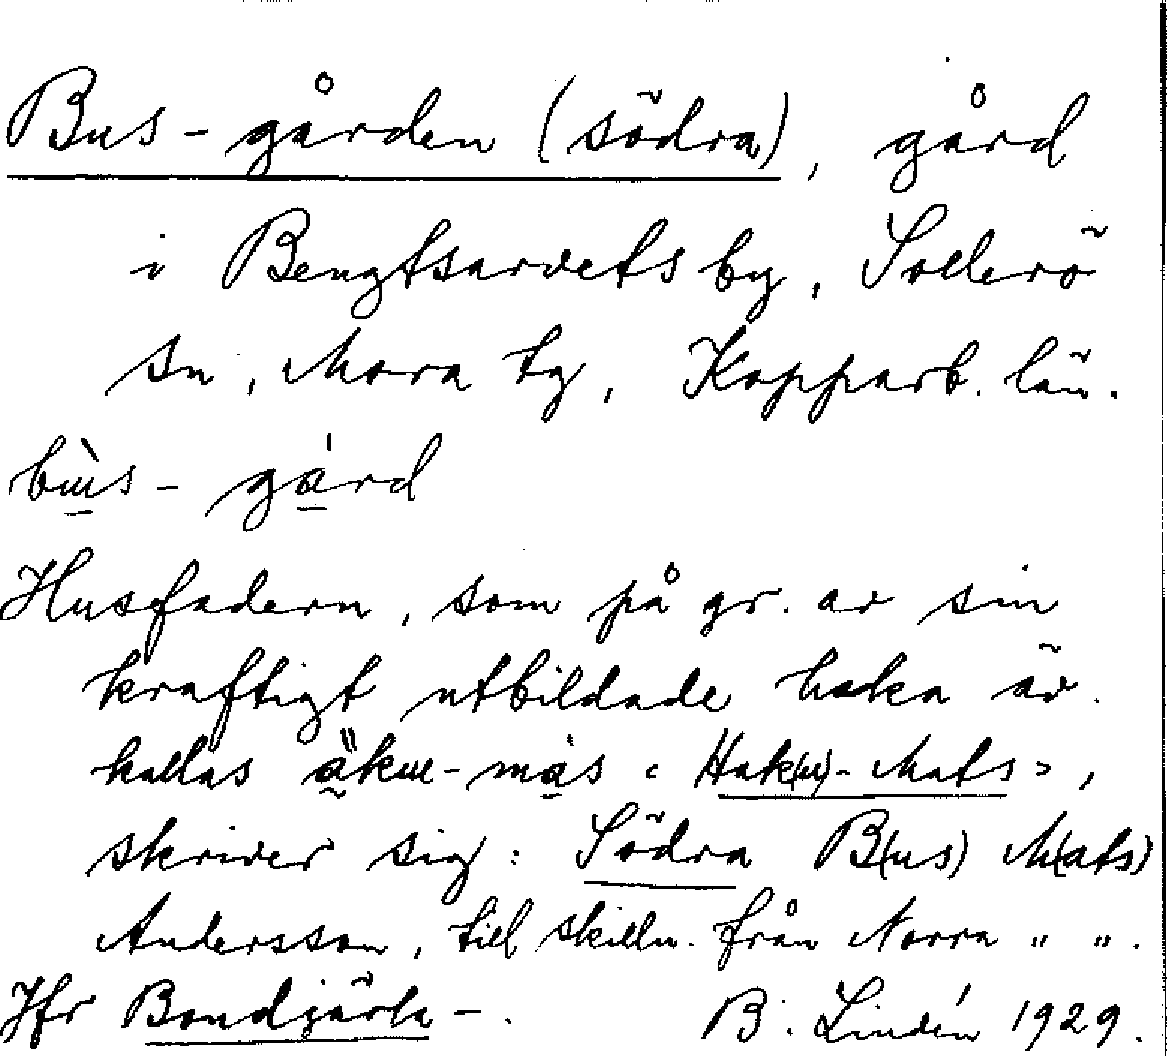 Bus-gården (södra), gård
i Bengtsarvets by, Sollerö
sn, Mora tg, Kopparb. län.
bùs- gård
Husfadern, som på gr. av sin
kraftigt utbildade haka äv.
kallas äkɯ-màs < Hak(u)-Mats >,
skriver sig: Södra B(us) M(ats)
Andersson, till skilln. från Norra " ".
Jfr Bondjärla -. B. Lindén 1929.